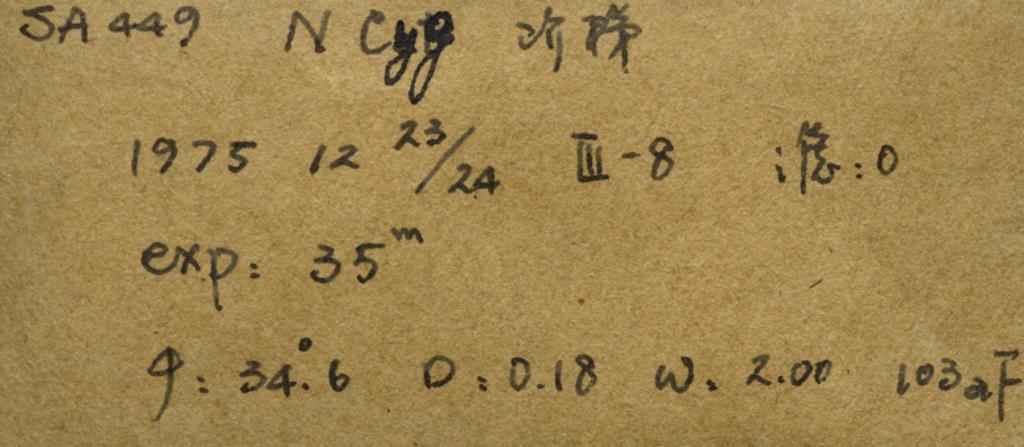 SA 449 N Cyg 阶梯
1975 12 23/24 III-8 滤:0
exp: 35ᵐ
φ: 34.°6 D: 0.18 W: 2.00 103aF